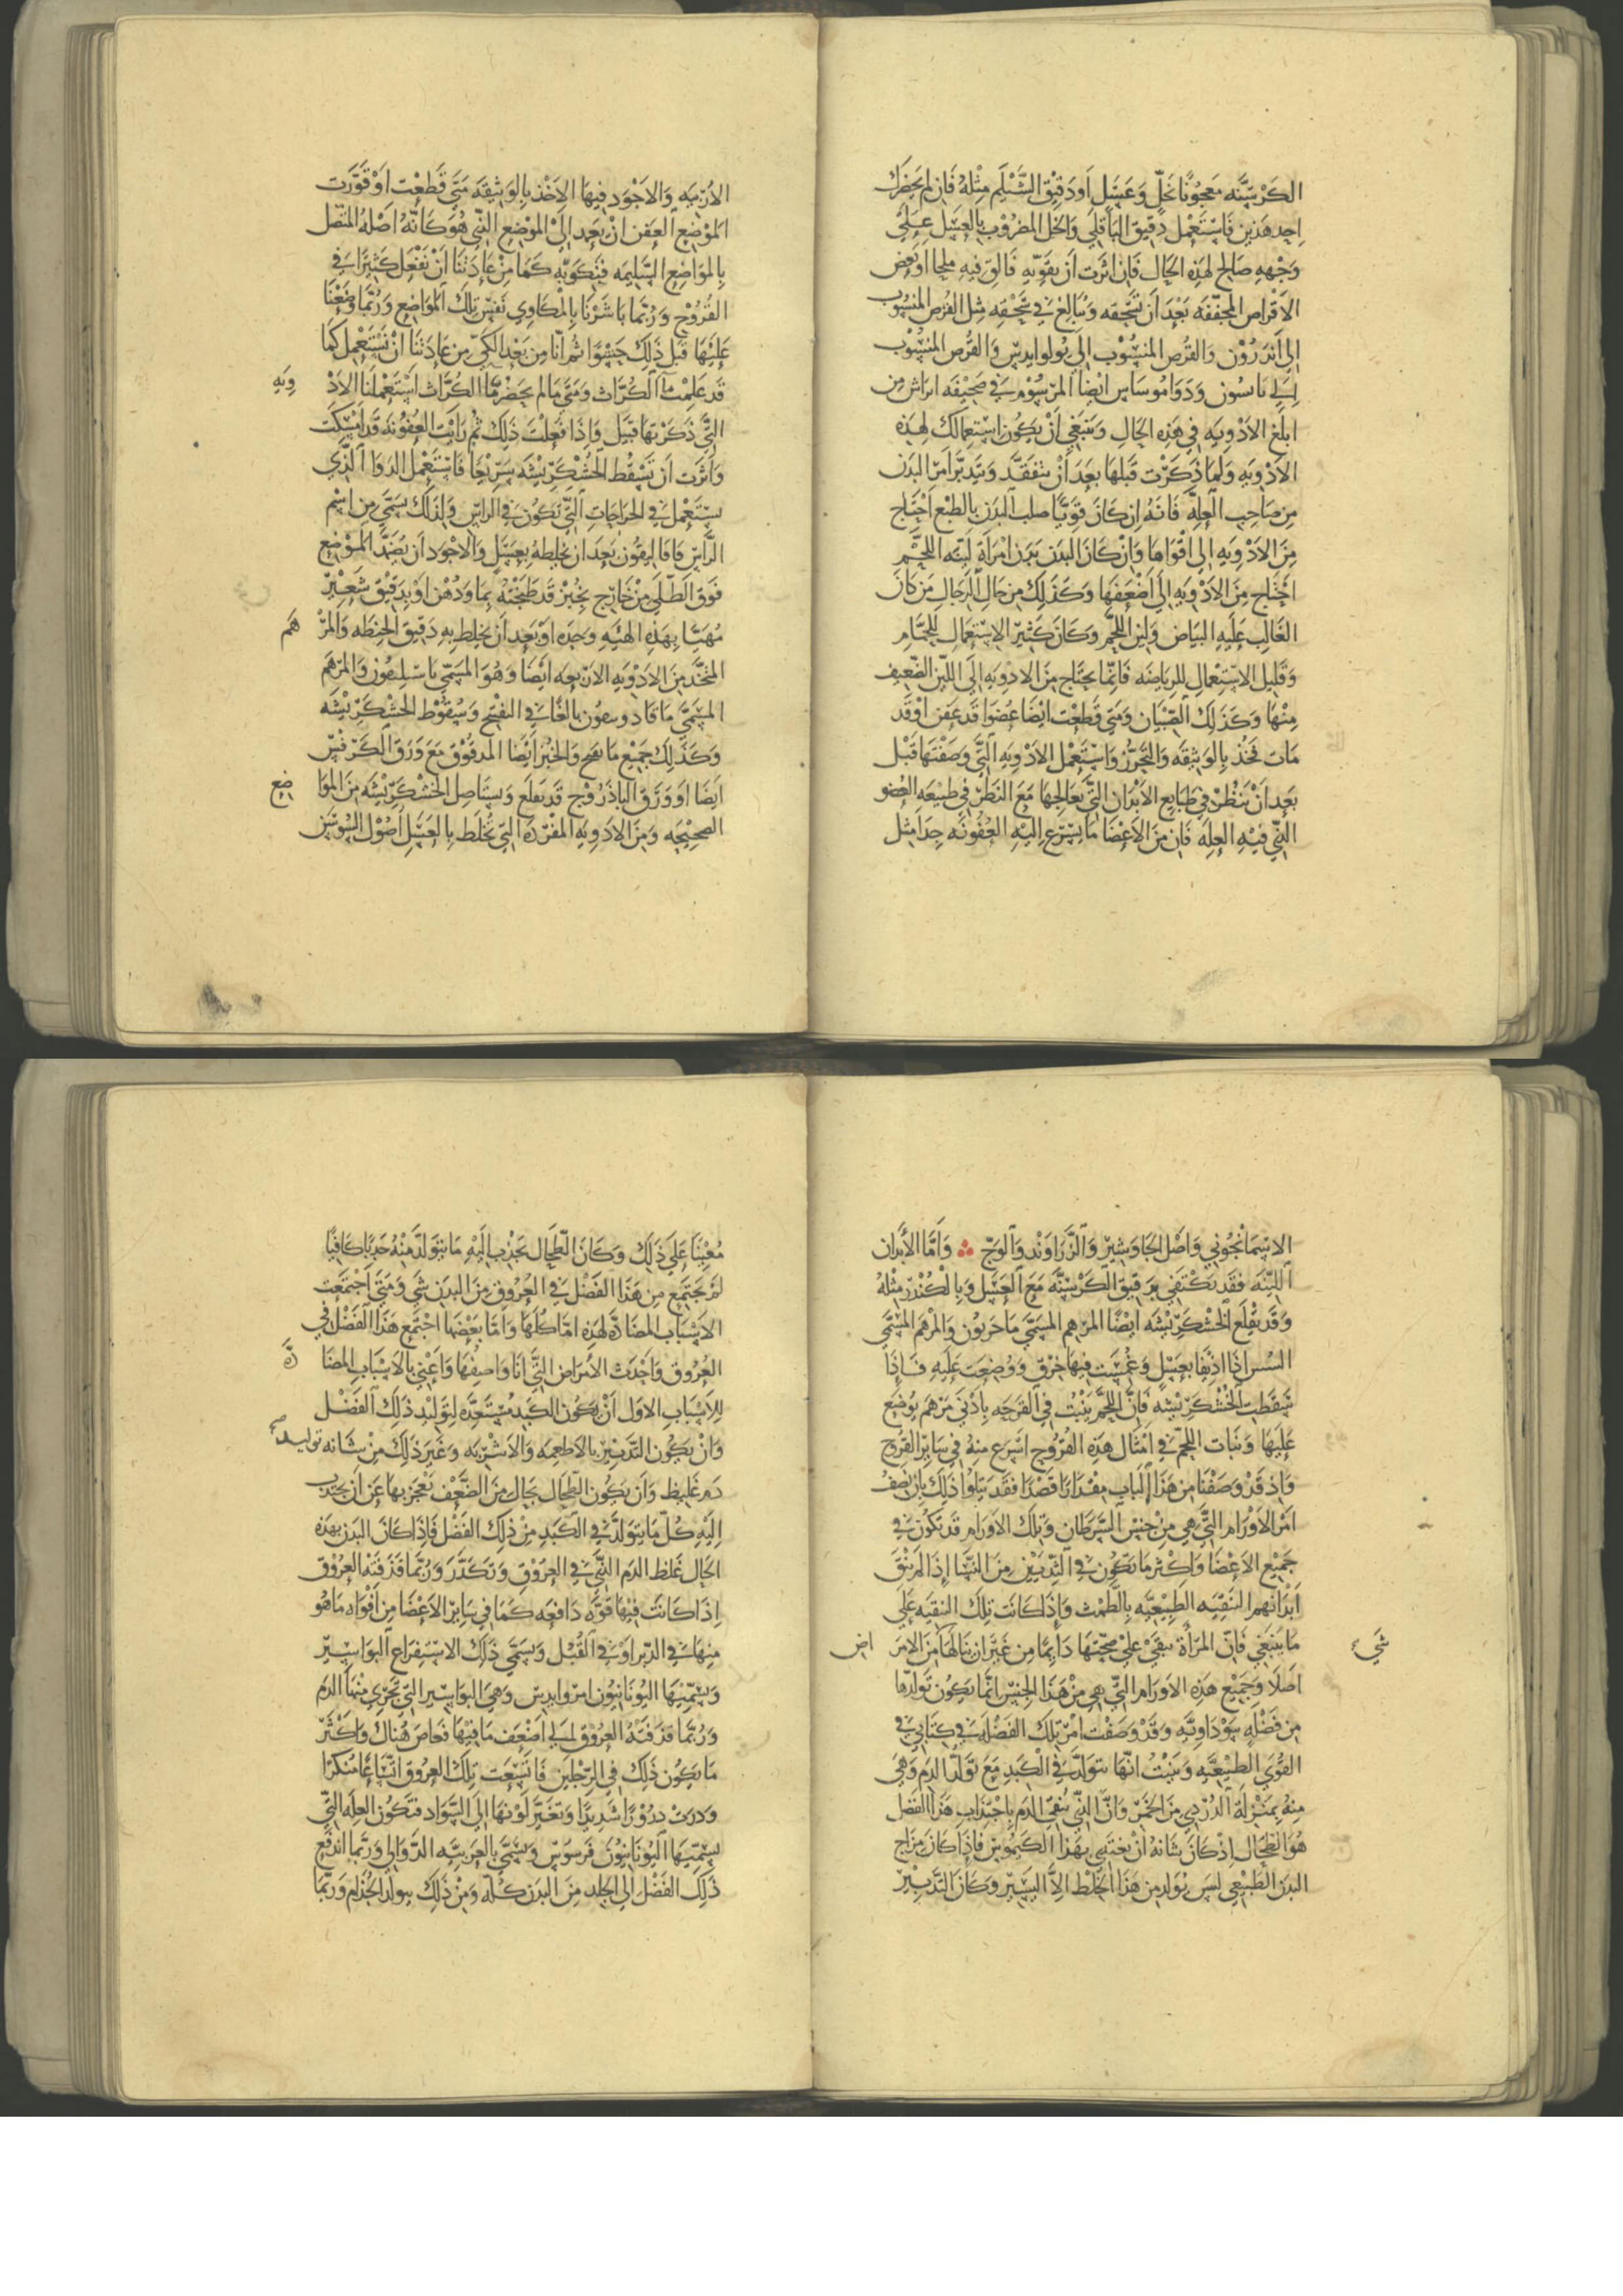 الكَرْسَنّه مَعجُونًا بخَلٍّ وَعَسَلٍ اَو دَقيْق الشَّيْلَم مِثْلهُ فَان لم يَحضرك
احد هَذين فَاسْتَعْمل دقيق البَاقلَي وَالخل المضْرُوْب بالعسَل عِلَيَ
وَجْههِ صَالح لهَذِه الحَال فَان اثرَت اَن يقوّيه فَالقِ فيهِ ملحا او بَعض
الاَقْراص المجفّفه بَعْد اَن تسْحَقه وَتبَالغ في سَحْقهِ مثل القُرص المنسُوب
الي اندَرُوْن وَالقُرص المنسُوْب الي بُولوايديس وَالقُرص المنسُوب
الي فاسُون وَدَوَا مُوسَاس ايْضا المرسُوْم في صَحيْفَه ابراش من
ابلَغ الاَدْويَه في هَذِه الحَال وَينبَغي اَنْ يكُون استعمالك لهَذه
الاَدْويَه وَلمَا ذكَرْت قَبلهَا بعَدَ اَنْ تتفَقَّد وَتتدبَّر اَمر البدَن
مِن صَاحب العلّه فَانهُ ان كَانَ قويًّا صلب البدَن بالطبْع احْتاج
مِنَ الاَدْويَه الي اقْوَاهَا وَانْ كَانَ البَدَن بَدَن امرَاَة ليّنه اللحم
احتَاج مِنَ الاَدْويَه الي اَضْعَفهَا وَكَذلِك من حَال الرجَال مَن كَانَ
الغَالب عَليْهِ البيَاض وَلين اللحْم وَكانَ كَثير الاسْتعمَال للحمَّام
وَقليل الاستعمَال للريَاضَه فَانّما يحتَاج مِنَ الادويَه اِلي اللّين الضّعيف
مِنْهَا وَكذلِك الصّبيَان وَمَتي قَطعْت ايْضًا عُضْوًا قَد عَفن اَوْ قَد
مَات فخُذ بالوَثيقَه وَالتحَرُّز وَاسْتَعْمل الاَدْويَه التي وَصَفْتهَا قَبْل
بعَد اَنْ تنظُرْ في طبَايع الابْدَان التي تعَالجهَا مَعَ النظر في طَبيعَه العُضو
الذِي فيْهِ العِلّه فَان مِنَ الاَعْضَا مَا يسْرع اليْهِ العُفُونَه جدَا مثل
الاُربيَه وَالاَجْوَد فيهَا الاَخْذ بالوَثيقَه مَتي قَطعْت اَوْ قَوّرت
الموْضع العَفن انْ تعَمد الي الموْضع الذِي هُوَ كَانهُ اَصْلهُ المتّصل
بالموَاضع السَّليمَه فَتكويَه كَمَا مِنْ عَادَتنَا اَنْ نفْعَل كَثيرًا في
القُرُوْح وَرُبّما بَاشَرْنَا بالمكَاوي نَفسْ تلك الموَاضع وَرُبّما وَضَعْنَا
عَليْهَا قَبل ذَلك حَشوًا ثم انّا من بَعْد الكَيّ مِن عَادَتنَا انْ نَسْتَعْمل كَمَا
قد عَلمْت مآ الكُرّاث وَمَتي مَا لم يحَضرْ مآ الكُرّاث اسْتَعْملنَا الادْ ويَه
التي ذكَرْتهَا قبيَل وَاِذَا فعَلتَ ذَلك ثم رَايْت العُفُونه قد امسَكَت
وَاَثرت اَن تسْقُط الخُشْكريْشَه سَريْعًا فَاسْتَعْمل الدَوا الَّذي
يستَعْمل في الجرَاحَات التي تكُون في الراس وَلذلك سُمّي من اسْم
الرّاس قَافاليقُون بعَد ان يخلطهُ بعَسَل وَالاَجْوَد اَن يُضمّد الموضع
فَوق الطّلي مِنْ خَارج بخُبْز قد طَبختهُ بمَا وَدُهْن اوْ بدَقيْق شَعيْر
مُهَيّا بهَذِهِ الهَيْئَهِ وَحدَه اوْ بعَد اَن يخلط بهِ دَقيْق الحنطَه وَالمرْ هَم
المتخّذ مِنَ الاَدْويَه الاَرْبعَه ايْضًا وَهُوَ المسَمّي باسْليقون وَالمرهَم
المسَمّي مَاقادوسيون بالغًا في الفَتح وَسُقُوْط الخشكَريْشَه
وَكَذلِك جَميْع مَا يفتح وَالخبْز ايْضًا المدقُوْق مَعَ وَرَق الكَرَفْس
ايَضًا اَو وَرَق الباذَرُوْج قد يقلَع وَيستَاصل الخُشْكَريْشَه مِنَ الموَا ضع
الصَحيْحَه وَمِنَ الاَدْويَهِ المفْردَه التي تخلَط بالعَسَل اصُوْل السُوْسَن
الاسْمَانجُوني وَاَصْل الجَاوَشيْر وَالزّرَاوَنْد وَالوَجّ ∴ وَاَمّا الاَبدَان
الليّنَه فقَد تكْتَفي بدَقيْق الكَرْسَنّه مَعَ العَسَل وَبالكُنْدُر مثْلهُ
وَقد يقْلَع الخُشكَريْشَه ايْضًا المرْهم المسَمّي ماخريون وَالمرْهَم المسَمّي
السس اذَا اذيفا بعسَل وَغُمسَت فيهَا خرَق وَوُضعَت عَليْهِ فَاِذا
سَقَطت الخُشْكَريْشَه فَانَّ اللحم يَنْبُت في القَرحَه بادْني مَرْهَم يُوضَع
عَليْهَا وَنَبات اللحم في اَمْثَال هَذِه القُرُوْح اَسْرع مِنهُ في سَاير القرُوْح
وَاِذ قَدْ وَصَفْنَا مِن هَذا البَاب مِقْدارًا قَصْدَا فقَد يتلُوا ذَلك بان نصفُ
امرَ الاَوْرَام التي هي مِنْ جنس السّرَطان وَتلك الاَورَام قَد تكوْن في
جَميْع الاَعْضَا وَاَكثر مَا يكُون في الثّديَيْن مِنَ النسَا اِذَا لم تنْقَ
اَبْدَانهم التنقيَه الطبيْعيّه بالطمْث وَاِذَا كانَت تلك التنقيَه علي
مَا ينبَغي فَانّ المرْاَة تبقَي علي صحّتهَا دَايمًا من غَيْر ان ينَالهَا مِنَ الامرَ اض شَيء
اَصلاَ وَجَميْع هَذِه الاَورَام التي هي مِنْ هَذا الجنْس انّما يكون تَولّدهَا
مِن فَضْله سَوْدَاويّه وَقدْ وَصَفْت امرْ تلك الفَضْلَه في كتَابي في
القُوَي الطبيْعيّه وَبيّنْتُ انّهَا تتولّد في الكَبد مَعَ تَولّد الدَم وَهيَ
مِنهُ بمنَزلَة الدُرْدي مِنَ الخَمرْ وَانّ الذي ينُقّي الدَم باجْتذَاب هَذا الفَضل
هُوَ الطحَال اِذ كَانَ شَانهُ اَنْ يغتَذي بهَذا الكَيمُوس فَاِذَا كَانَ مِزَاج
البدَن الطبيْعي ليسَ يوُلد مِن هَذا الخلط الاَّ اليَسيْر وَكانَ التَدبيْر
مُعيْنًا عَلي ذَلك وَكَانَ الطحَال يجَذْب اليْهِ مَا يتوَلّد مِنْهُ جَذبًا كَافيًا
لم يجتَمع مِن هَذا الفَضْل في العُرُوْق مِنَ البدَن شَي وَمَتي اجْتمَعَت
الاَسْبَاب المضَادّه لهَذِه اِمّا كُلّهَا وَاِمّا بَعْضهَا اجْتَمَع هَذا الفَضل في
العُرُوْق وَاَحْدَث الاَمْرَاض التي اَنَا وَاصفُهَا وَاَعْني بالاَسْبَاب المضَا دّه
للاَسْبَاب الاوَل اَنْ يكُون الكَبد مُسْتَعدّه لتَوليْد ذَلك الفَضْل
وَانْ يكُون التدبيْر بالاَطعِمه وَالاَشْربَه وَغَيْر ذَلك مِنْ شَانه توليد
دَم غَليظ وَاَن يَكُون الطحَال بحَال مِنَ الضّعْف يَعْجَز بهَا عَن اَن يجذب
اِليْهِ كُلّ مَا يتَولّد في الكَبد مِنْ ذلِك الفَضْل فَاِذَا كَانَ البدَن بهَذه
الحَال غَلظ الدَم الذِي في العرُوْقِ وَتَكَدّر وَرُبّما قذفَتْهُ العُرُوْق
اِذَا كَانَت فيْهَا قوّة دَافعَه كَمَا في سَاير الاَعْضَا مِن اَفْوَاه مَا هُو
مِنهَا في الدّبر اَوْ في القُبل وَيُسمّي ذَلك الاسْتفرَاغ البوَاسيْر
وَيسمّيْهَا اليُونَانيُون امروايديس وَهيَ البوَاسير التي يجْري مِنهَا الدَم
وَرُبّما قذَفَتْهُ العرُوْق الي اضْعَف مَا فيْهَا فَغَاصَ هُنَاك وَاكْثَر
مَا يكُون ذَلك في الرجْلين فَاتّسَعَت تلك العرُوق اتّسَاعًا مُنكرًا
وَدَرتْ درُوْرًا شَديدًا وَتغَيّر لَوْنهَا الي السّوَاد فتَكُون العلّه التي
يسَمّيهَا اليُونَانيُون قَرسُوس وَتسَمّي بالعَربيّه الدّوَالي وَرُبّما اندَفَع
ذَلك الفَضْل الي الجلد مِنَ البدَن كُلّه وَمِنْ ذَلك يتولّد الجُذَام وَرُبّما